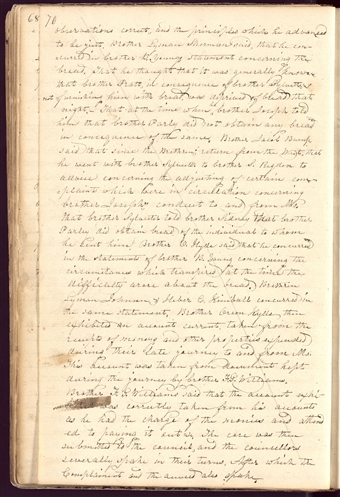 68 70
observations correct, and the principles which he advanced
to be just, Brother Lyman Sherman said, that he con-
curred in brother B. Youngs statement concerning the
bread, that he thought that it was generally known
that brother Pratt, in consequence of brother Sylvester's
not furnishing him with bread was deprived of bread that
night. That at the time when brother Joseph told
him that brother Parley did not obtain any bread
in consequence of the same, Brother Jacob Bump
said that since the Brethren's return from the West, that
he went with brother Sylvester to brother S. Rigdon to
advise concerning the adjusting of certain com-
plaint which were in circulation concerning
brother Joseph's conduct to and from Mo.
that brother Sylvester told brother Sidney that brother
Parley did obtain bread of the individual to whom
he sent him. Brother O. Hyde said that he concurred
in the statements of brother B. Young concerning the
circumstances which transpired at the time the
difficulty arose about the bread, Brethren
Lyman Johnson, & Heber C. Kimball concurred in
the same statement, Brother Orson Hyde, then
exhibited an account current, taken from the
receipts of moneys and other properties expended
during their late journey to and from Mo.
This account was taken from document kept
during the journey by brother F. G. Williams.
Brother F. G. Williams said that the account exhi-
was correctly taken from his accounts
as he had the charge of the monies and attend
ed to paying it out. The case was then
submitted to the council, and the counsellors
severally spake in their turns, After which the
Complainant and the accused also spake,